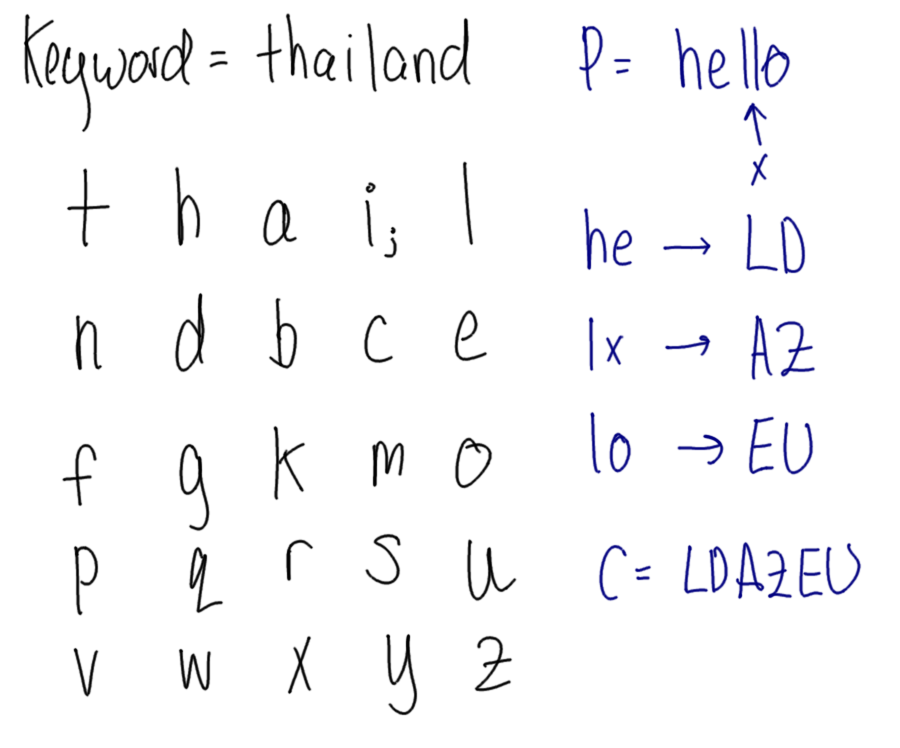 Keyword = thailand
t h a i,j l
n d b c e
f g k m o
p q r s u
v w x y z
P = hello
↑
x
he → LD
lx → AZ
lo → EU
C = LDAZEU